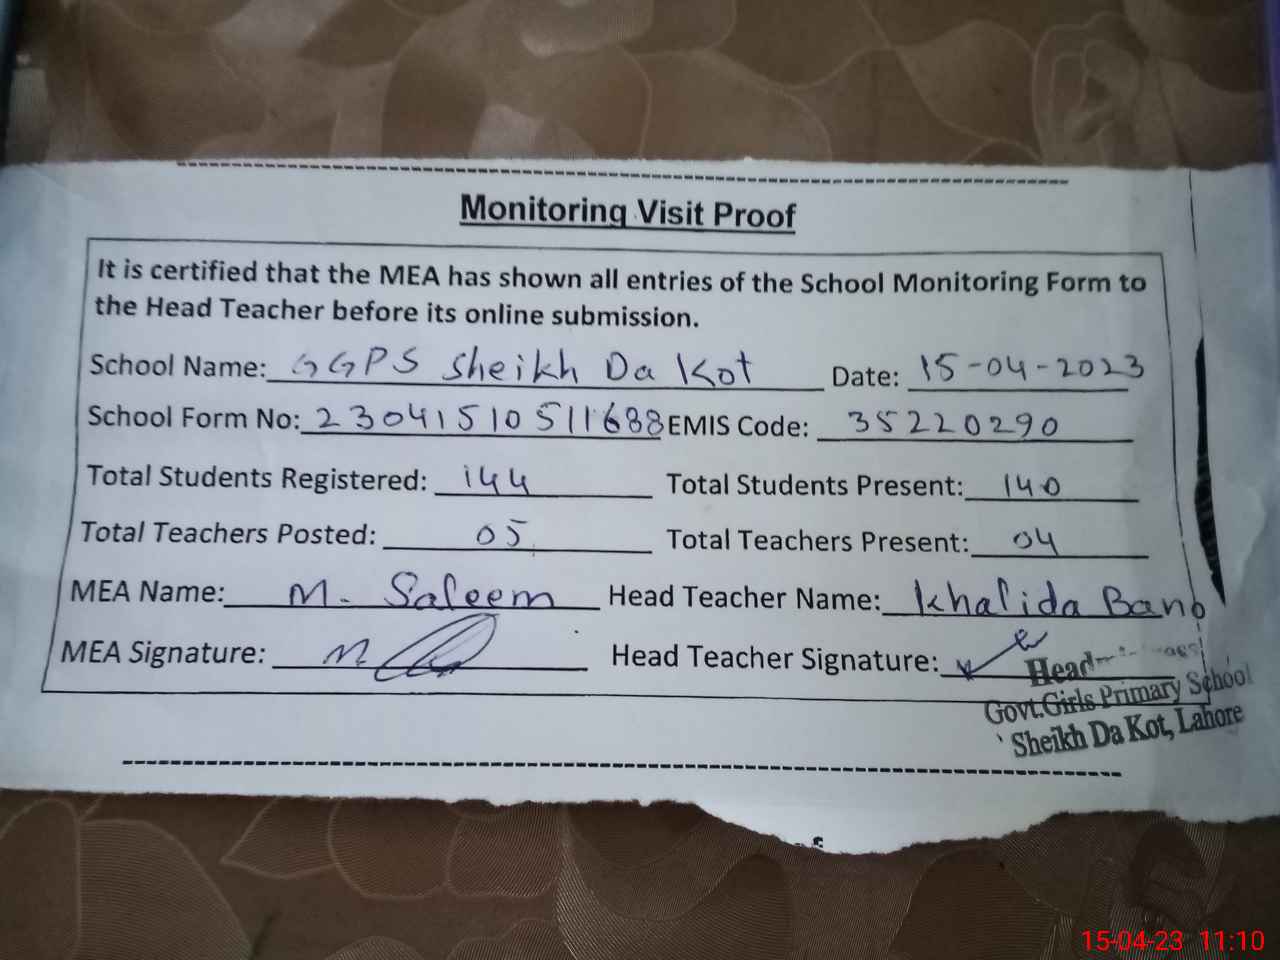 Monitoring Visit Proof
It is certified that the MEA has shown all entries of the School Monitoring Form to
the Head Teacher before its online submission.
School Name: GGPS Sheikh Da Kot Date: 15-04-2023
School Form No: 23041510511688 EMIS Code: 35220290
Total Students Registered: 144 Total Students Present: 140
Total Teachers Posted: 05 Total Teachers Present: 04
MEA Name: M. Saleem Head Teacher Name: Khalida Bano
MEA Signature: Head Teacher Signature:
Govt.Girls Primary School
Sheikh Da Kot, Lahore
15-04-23 11:10